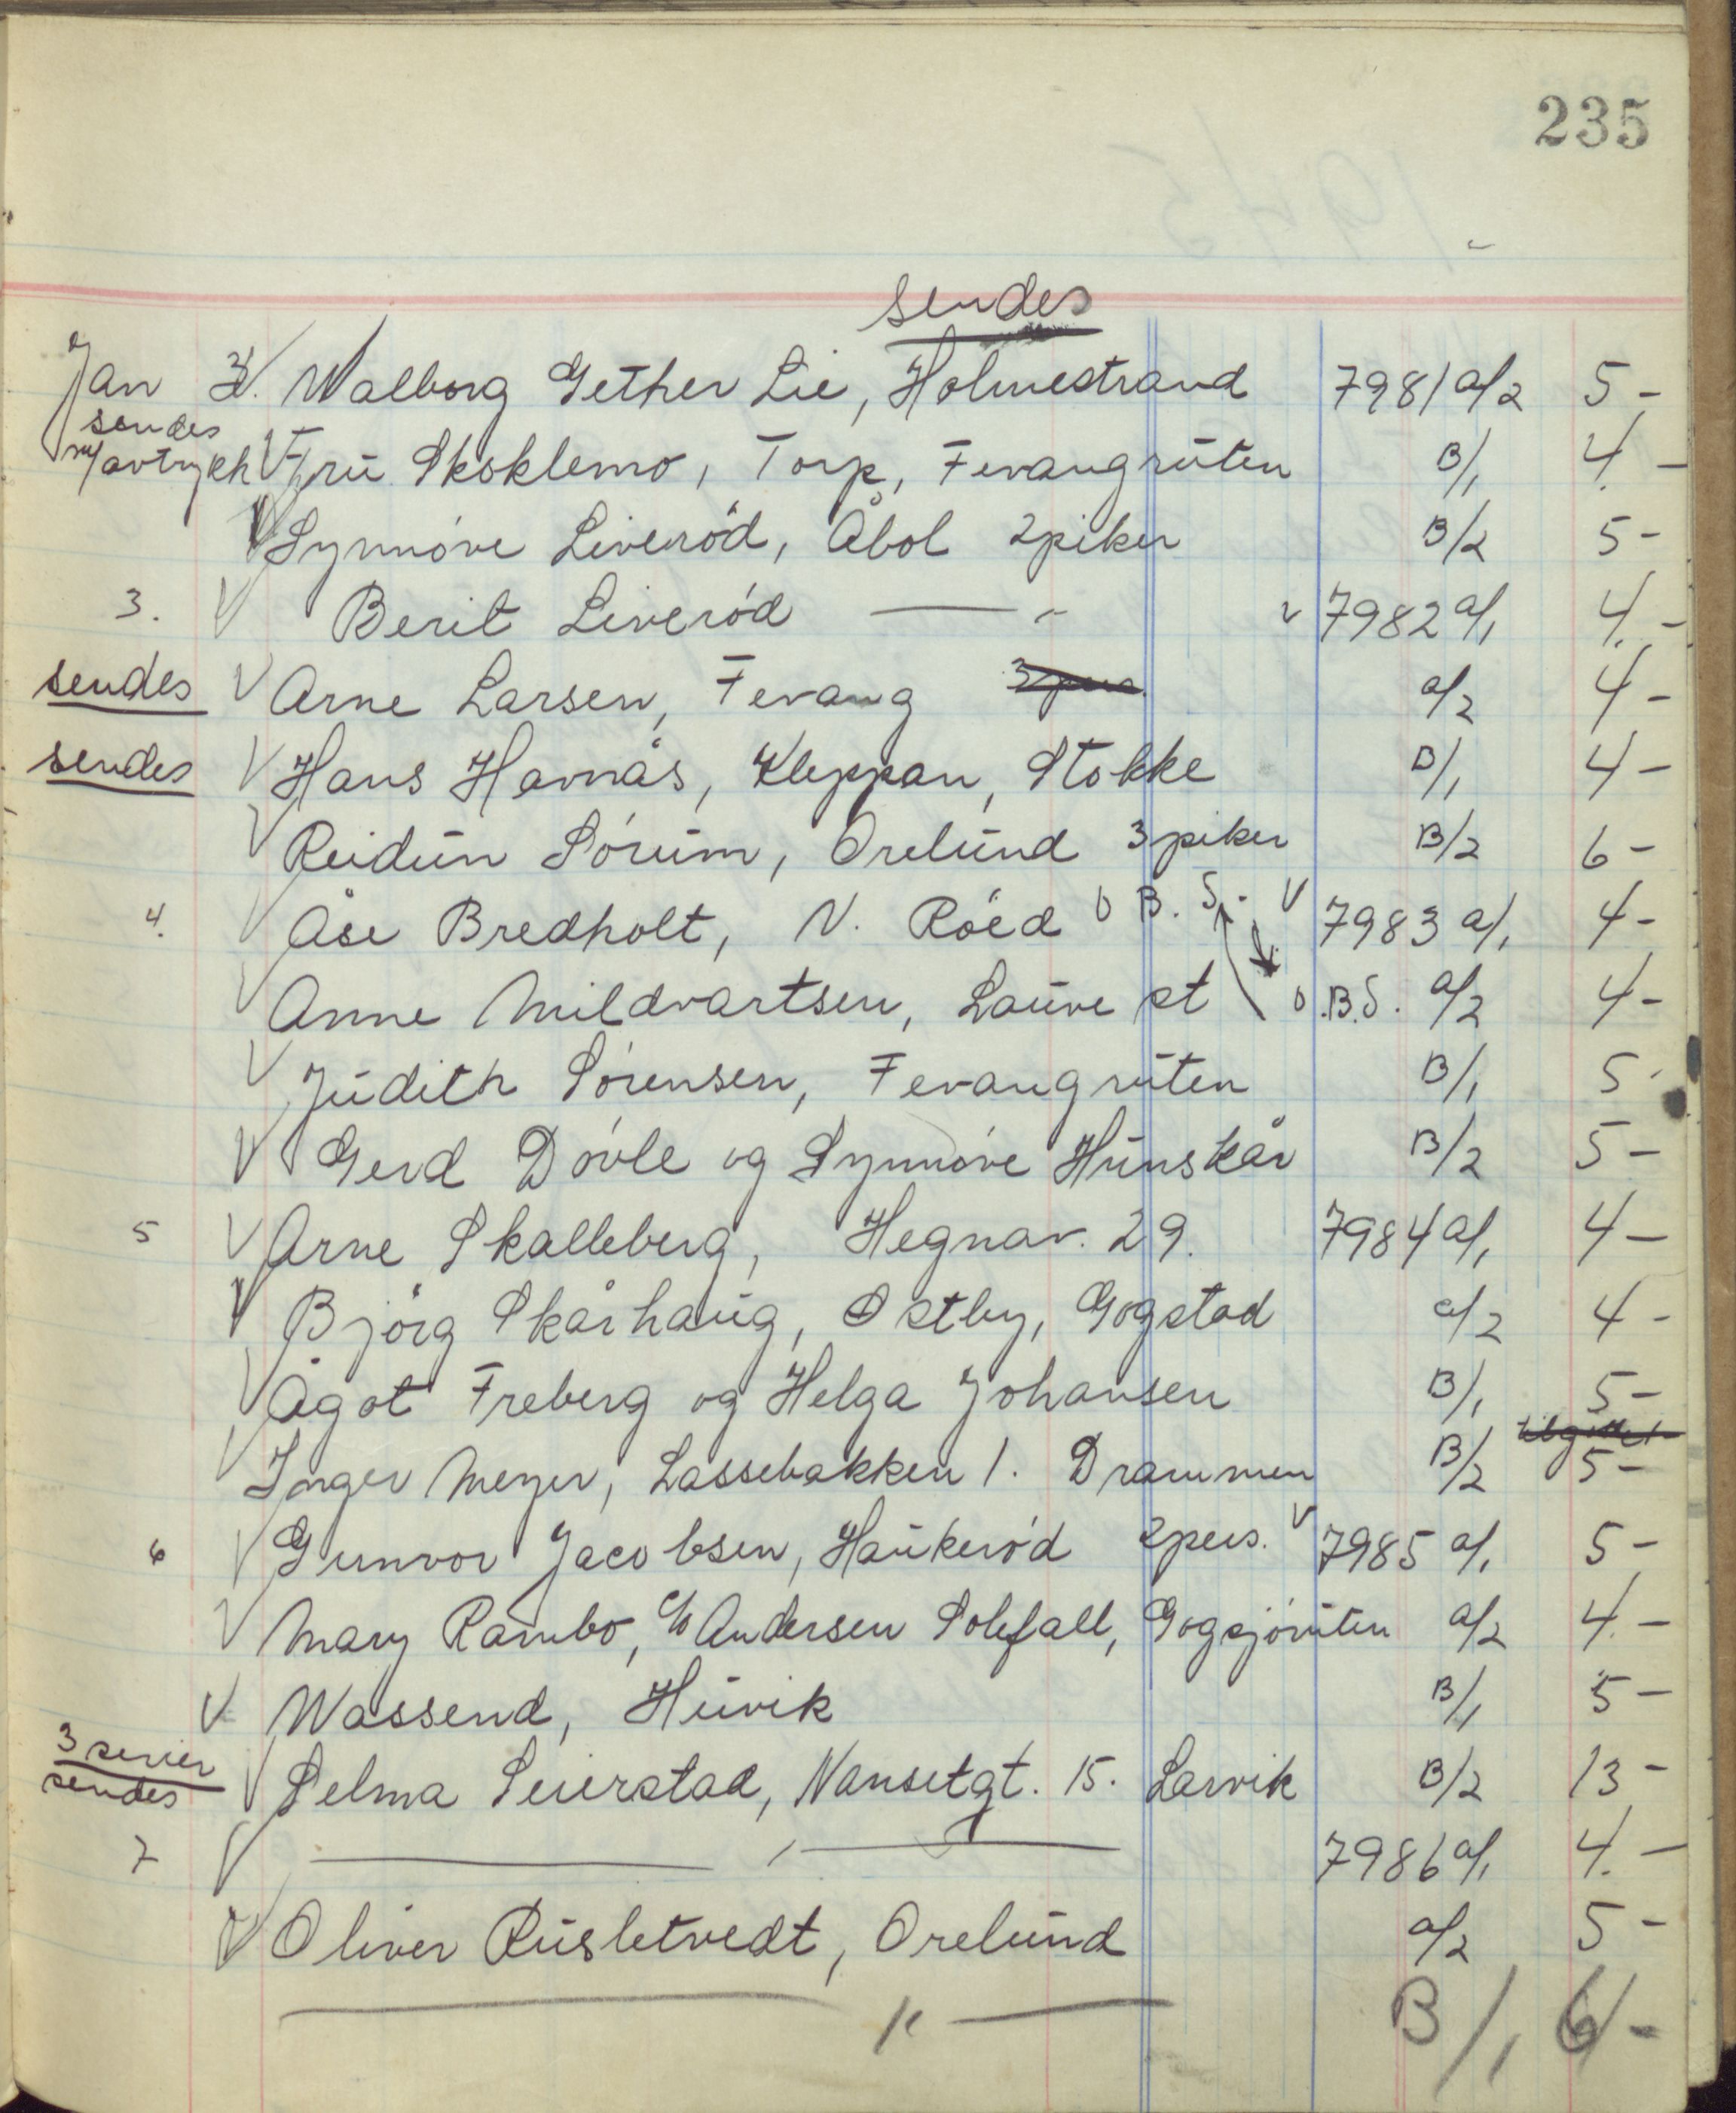 235
sendes
Jan 3. V Walborg Gether Lie, Holmestrand 7981 a/2 5 -
sendes
m/avtrykk V Fru Skoklemo, Torp, Fevangruten B/1 4. -
V Synnöve Liveröd, Åbol 2 piker B/2 5 -
3. V Berit Liveröd — " — v 7982 a/1 4. -
sendes V Arne Larsen, Fevang 3 pers. a/2 4 -
sendes V Hans Havnås, Kleppan, Stokke B/1 4 -
V Reidun Sörum, Orelund 3 piker B/2 6 -
4. V Åse Bredholt, N. Röed O B. S. - V 7983 a/1 4 -
V Anne Mildvartsen, Lauve st O.B.S. a/2 4 -
V Judith Sörensen, Fevangruten B/1 5 -
V Gerd Dövle og Synnöve Hunskår B/2 5 -
5 V Arne Skalleberg, Hegnav. 29. 7984 a/1 4 -
V Björg Skårhaug, Östby, Gogstad a/2 4 -
V Ågot Freberg og Helga Johansen B/1 5 -
V Inger Meyer, Lassebakken 1. Drammen B/2 5 -
6 V Gunvor Jacobsen, Haukeröd 2 pers. v 7985 a/1 5 -
V Mary Rambo, c/o Andersen Solefall, Gogsjöruten a/2 4. -
V Wassend, Huvik B/1 5 -
3 serier
sendes V Selma Seierstad, Nansetgt. 15. Larvik B/2 13 -
7 V — " — 7986 a/1 4. -
V Oliver Rusletvedt, Orelund a/2 5 -
— " — B/1 6 -